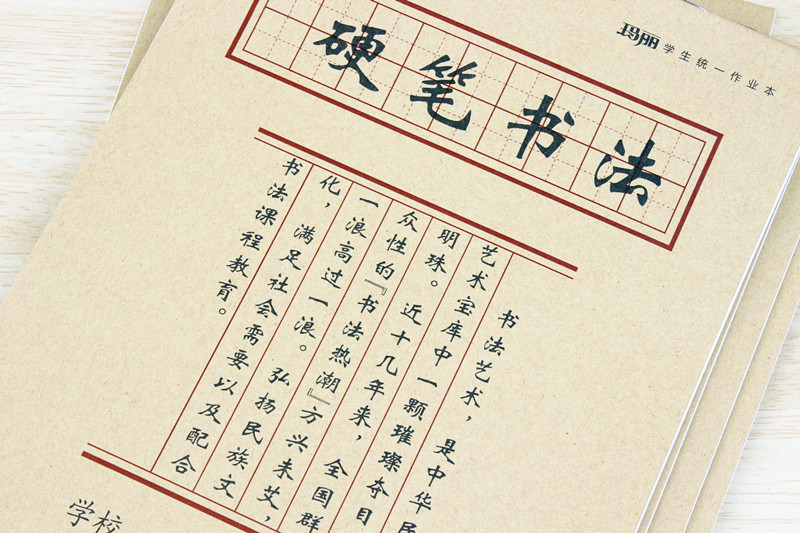 玛丽 学生统一作业本
硬笔书法
书法艺术，是中华民
艺术宝库中一颗璀璨夺目
明珠。近十几年来，全国群
众性的『书法热潮』方兴未艾，
一浪高过一浪。弘扬民族文
化，满足社会需要以及配合
书法课程教育。
学校